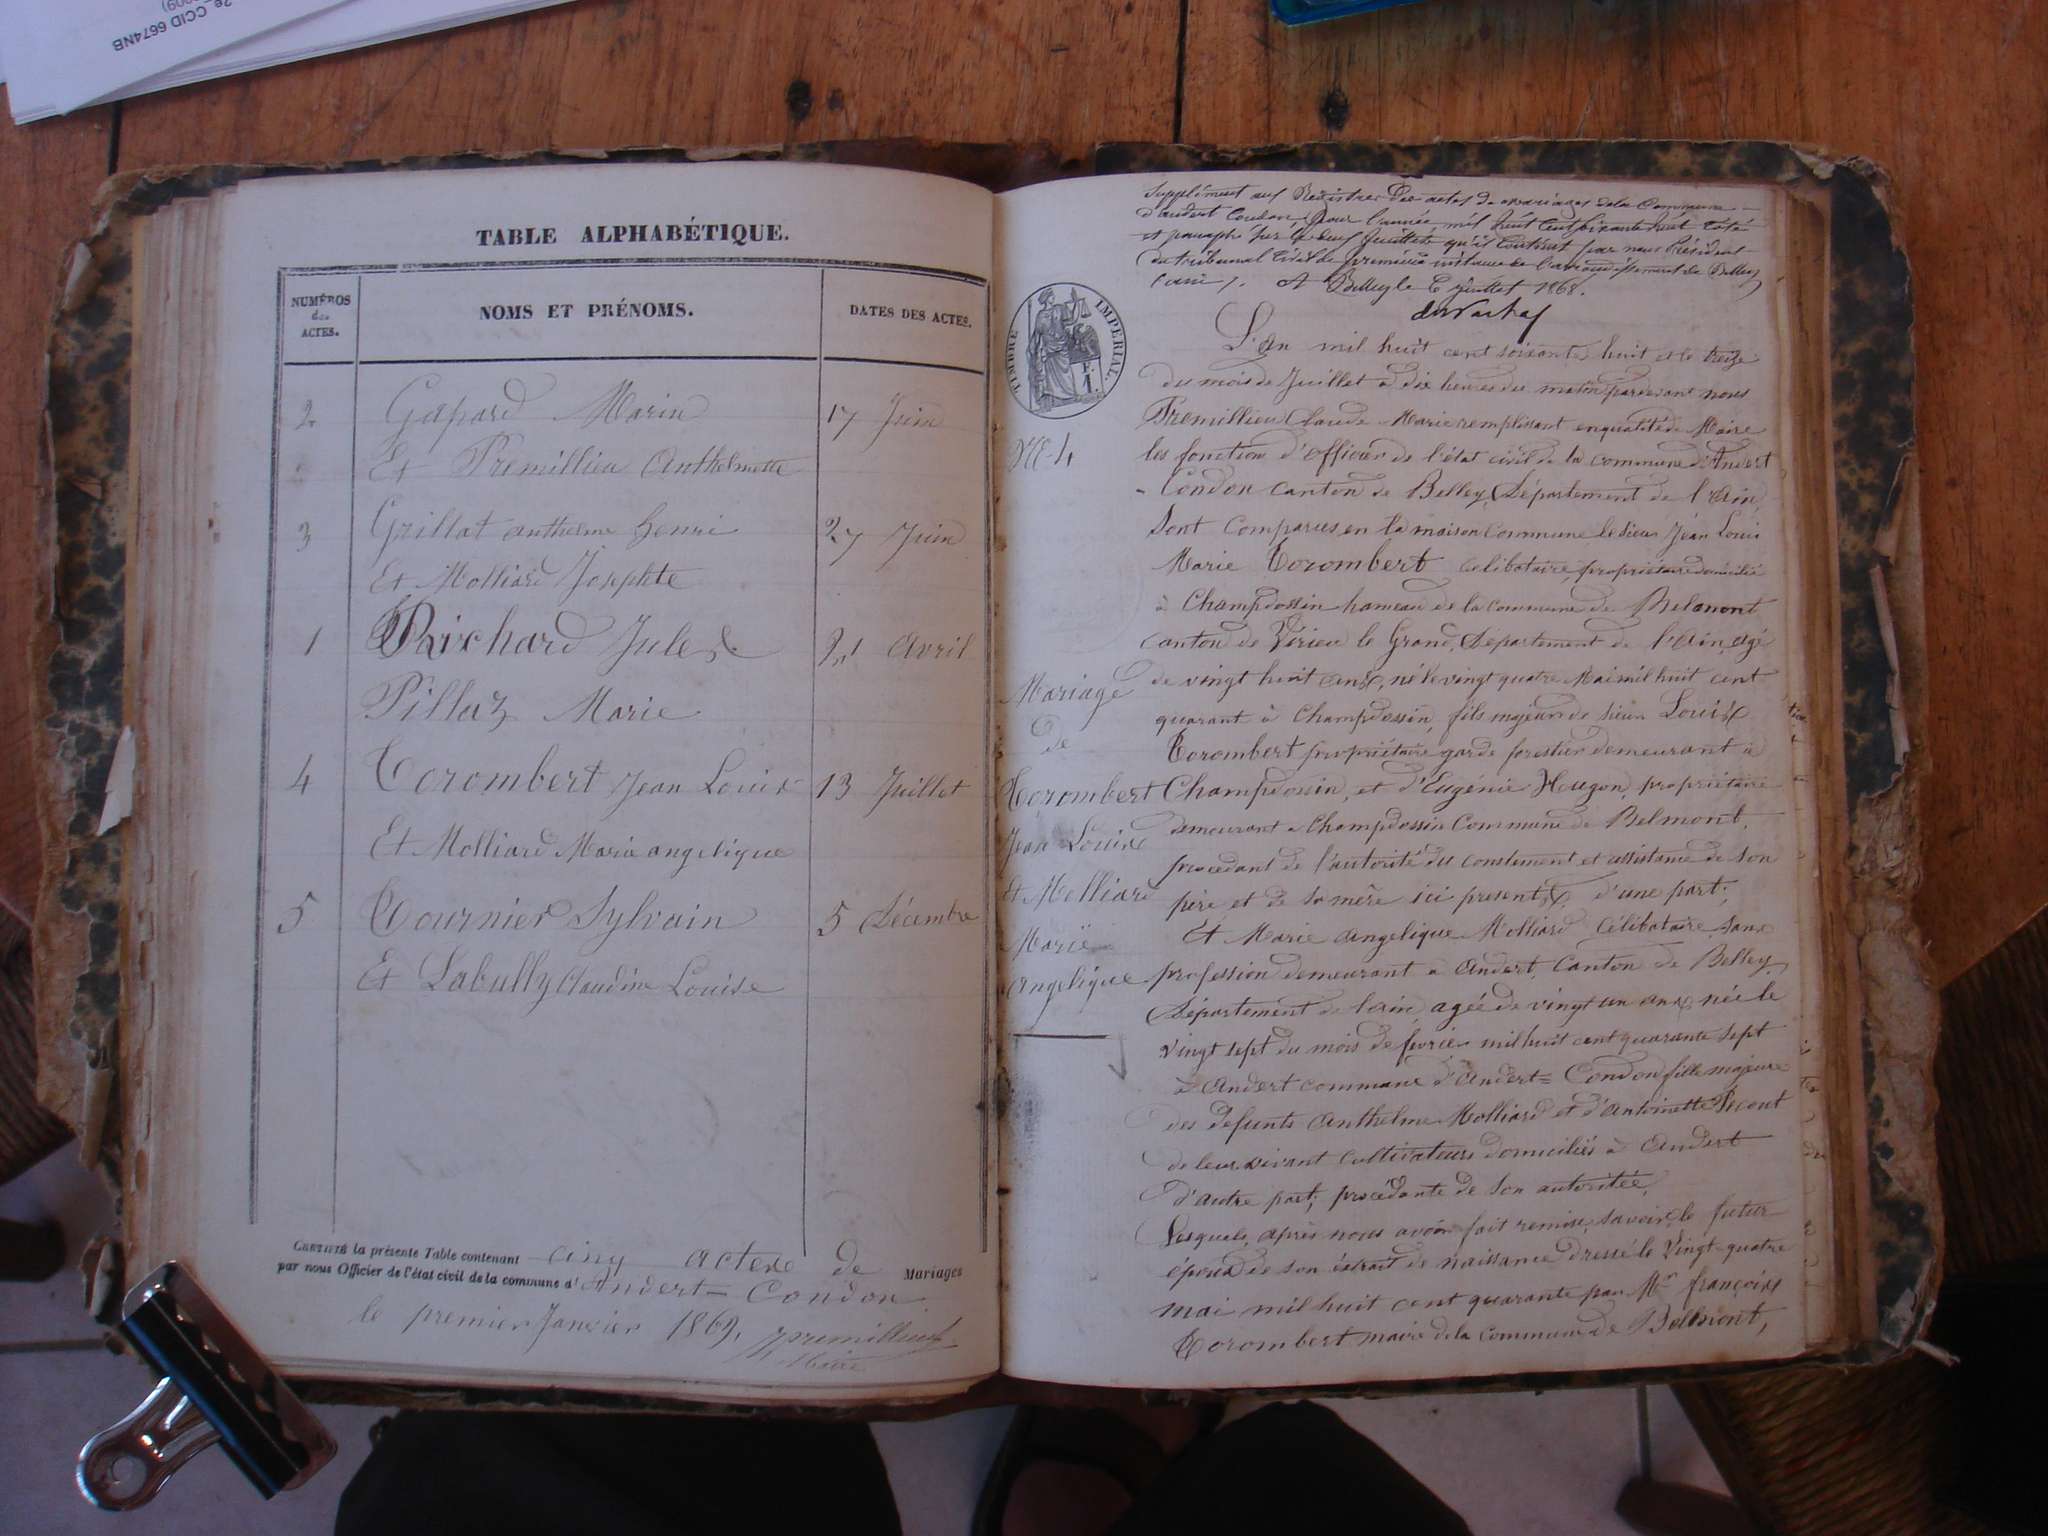 2e, CCID 6674NB
TABLE ALPHABÉTIQUE.
NUMÉROS des ACTES.
NOMS ET PRÉNOMS.
DATES DES ACTES.
2 Gapard Marin 17 Juin
Et Premillieu Anthelmette
3 Grillat anthelme henri 27 Juin
Et Molliard Josephte
1 Richard Jules 21 Avril
Pillaz Marie
4 Corombert Jean Louis 13 Juillet
Et Molliard Marie angelique
5 Tournier Sylvain 5 Décembre
Et Labully Claudine Louise
CERTIFIÉ la présente Table contenant cinq actes de Mariages
par nous Officier de l'état civil de la commune d'Andert = Condon
le premier Janvier 1869. Premillieu
Maire
Supplément aux Registres des actes de mariages de la Commune
d'andert Condon, pour l'année mil huit cent soixante huit coté
et paraphé par les deux feuillets qu'il contient par nous Président
du tribunal Civil de première instance de l'arrondissement de Belley
(ain). A Belley le 6 juillet 1868.
TIMBRE IMPERIAL
L'an mil huit cent soixante huit et le treize
du mois de Juillet à dix heures du matin pardevant nous
Premillieu Claude Marie remplissant en qualité de Maire
No 4
les fonction d'officier de l'état civil de la commune d'Andert
- Condon canton de Belley, Département de l'ain,
Sont comparus en la maison commune le sieur Jean Louis
Marie Corombert celibataire, propriétaire domicilié
à Champdossin hameau de la commune de Belmont
canton de Virieu le Grand, Département de l'Ain, agé
de vingt huit ans, né le vingt quatre Mai mil huit cent
quarant à Champdossin, fils majeur de sieur Louis
Corombert propriétaire garde forestier demeurant à
Champdossin, et d'Eugénie Hugon, propriétaire
demeurant a Champdossin Commune de Belmont,
procedant de l'autorité du constement et assistance de son
père et de sa mère ici present, d'une part;
Et Marie angelique Molliard Célibataire, sans
profession demeurant a Andert, Canton de Belley,
Département de l'ain, agée de vingt un ans née le
vingt sept du mois de fevrier mil huit cent quarante sept
à Andert commune d'Andert = Condon fille majeure
des defunts Anthelme Molliard et d'antoinette
de leur vivant cultivateurs domiciliés à Andert
d'autre part; procédante de son autoritée,
Lesquels, après nous avoir fait remise, savoir le futur
époux de son extrait de naissance dressé le Vingt-quatre
mai mil huit cent quarante par Mr françois
Corombert maire de la commune de Belmont,
Mariage
De
Corombert
Jean Louis
Et Molliard
Marie
Angelique